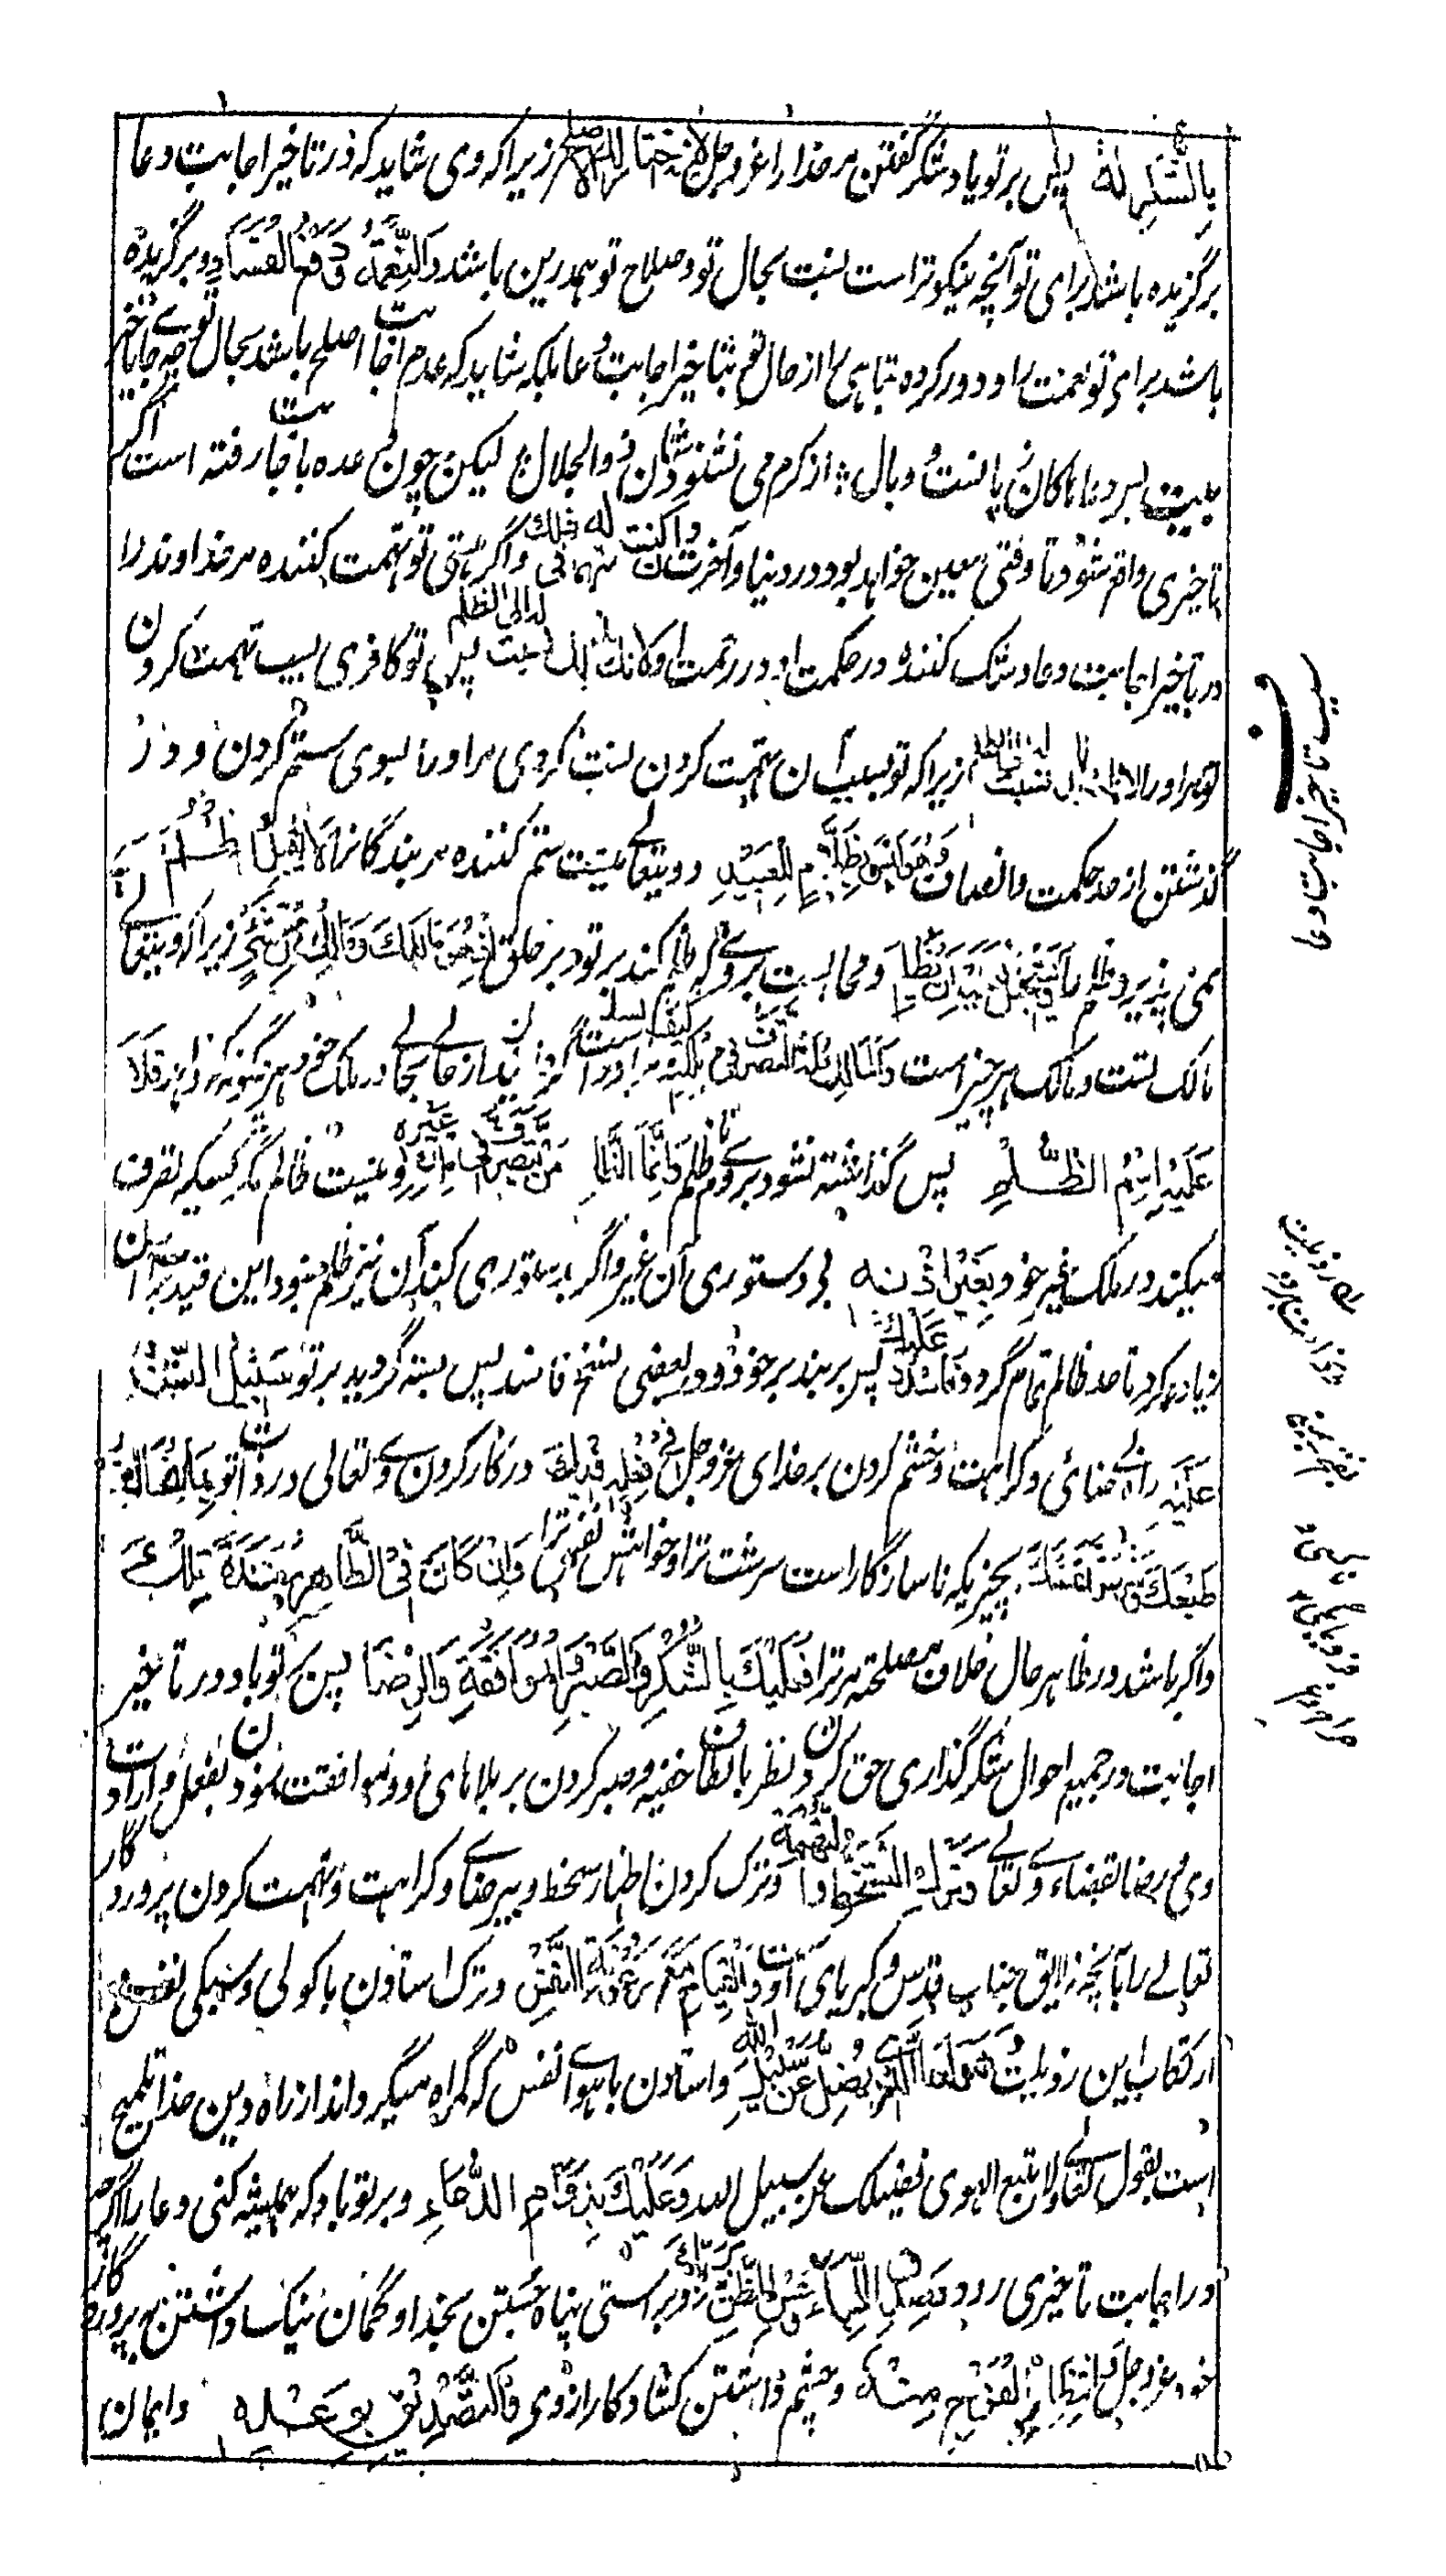 بِالشُّكرِ لَهُ پس بر تو باد شکر گفتن مر خدا را عز و جل لانه اختار لك الاصلح زیرا که وی شاید که در تاخیر اجابت دعا
برگزیده باشد برای تو آنچه نیکوتر است نسبت بحال تو و صلاح تو همدرین باشد وَالنِّعْمَةَ وَدَفْعَ الْفَسَادِ و برگزیده
باشد برای تو نعمت را و دور کرده تباهی را از حال تو بتاخیر اجابت دعا بلکه شاید که عدم اجابت اصلح باشد بحال تو چه جای تاخیر
بیت بس دعاها کان زیانست و وبال از کرم می نشنود شان ذوالجلال لیکن چون وعده با اجابت رفته است اگر
تاخیری واقع شود تا وقتی معین خواهد بود در دنیا و آخرت وان کنت متهما له فی ذلك و اگر هستی تو تهمت کننده مر خداوند را
در تاخیر اجابت دعا و شک کننده در حکمت او و در رحمت او پس تو کافری بسبب تهمت کردن
تو مر او را لانك نسبته الی الظلم زیرا که تو بسبب آن تهمت کردن نسبت کردی مر او را بسوی ستم کردن و در
گذشتن از حد حکمت و انصاف وَهُوَ لَيْسَ بِظَلَّامٍ لِلْعَبِيدِ و ویتعالی نیست ستم کننده مر بندگان را لَا يَقْبَلُ الظُّلْمَ
نمی پذیرد ظلم را وَيَسْتَحِيلُ أَنْ يَظْلِمَ و محالست بر وی که ظلم کند بر تو و بر خلق اِذْ هُوَ مَالِكُكَ وَمَالِكُ كُلِّ شَيْءٍ زیرا که ویتعالی
مالک تست و مالک هر چیز است وَالْمَالِكُ لَهُ التَّصَرُّفُ فِي مِلْكِهِ كَيْفَ يَشَاءُ مر او را است گردانیدن از حالی بحالی در ملک خود هر گونه که خواهد فَلَا
عَلَيْهِ اِسْمُ الظُّلْمِ پس گذاشته نشود بر وی نام ظلم وَاِنَّمَا الظَّالِمُ مَنْ يَتَصَرَّفُ فِي مِلْكِ غَيْرِهِ و نیست ظالم مگر کسیکه تصرف
میکند در ملک غیر خود بِغَيْرِ اِذْنِهِ بی دستوری آن غیر و اگر بدستوری کند آن نیز ظلم نبود این قید برای آن
زیاده کرد تا حد ظالم تمام گردد عَلَيْكَ پس بر بند بر خود و در بعضی نسخ فانسد پس بسته گردید بر تو سَبِيلُ السَّخَطِ
عَلَيْهِ راه ناخشنائی و کراهت و خشم کردن بر خدای عز و جل فِي فِعْلِهِ فِيكَ در کار کردن وی تعالی در ذات تو بِمَا يُخَالِفُ
طَبْعَكَ بچیزیکه ناسازگار است سرشت ترا و خواهش نفس ترا وَاِنْ كَانَ فِي الظَّاهِرِ مَفْسَدَةً لَكَ
و اگر باشد در ظاهر حال خلاف مصلحت مر ترا فَعَلَيْكَ بِالشُّكْرِ وَالصَّبْرِ وَالْمُوَافَقَةِ وَالرِّضَا پس بر تو باد در تاخیر
اجابت در جمیع احوال شکرگذاری حق کردن نظر بالطاف خفیه و صبر کردن بر بلاهای او و موافقت نمودن بفعل و ارادت
وی و رضا بقضاء وی تعالی وَتَرْكِ السَّخَطِ وَالتُّهْمَةِ و ترک کردن اظهار سخط و بیرضائی و کراهت و تهمت کردن پروردگار
تعالی را بآنچه نه لایق جناب قدس و کبریای اوست وَالْقِيَامِ مَعَ رُعُونَةِ النَّفْسِ و ترک استادن با کولی و سبکی نفس
ارتکاب این رذیلت وَهَوَاهَا الَّذِي يُضِلُّ عَنْ سَبِيلِ اللهِ و استادن با هوای نفس که گمراه میگرداند از راه دین خدا تلمیح
است بقول تعالی ولا تتبع الهوی فیضلک عن سبیل الله وَعَلَيْكَ بِدَوَامِ الدُّعَاءِ و بر تو باد که همیشه کنی دعا را اگرچه
در اجابت تاخیری رود وَصِدْقِ اللِّجَاءِ وَحُسْنِ الظَّنِّ بِرَبِّكَ و براستی پناه جستن بخدا و گمان نیک داشتن به پروردگار
خود عز و جل وَانْتِظَارِ الْفَرَجِ مِنْهُ و چشم داشتن کشاد کار از وی وَالتَّصْدِيقِ بِوَعْدِهِ و ایمان
سبب تاخیر اجابت دعا